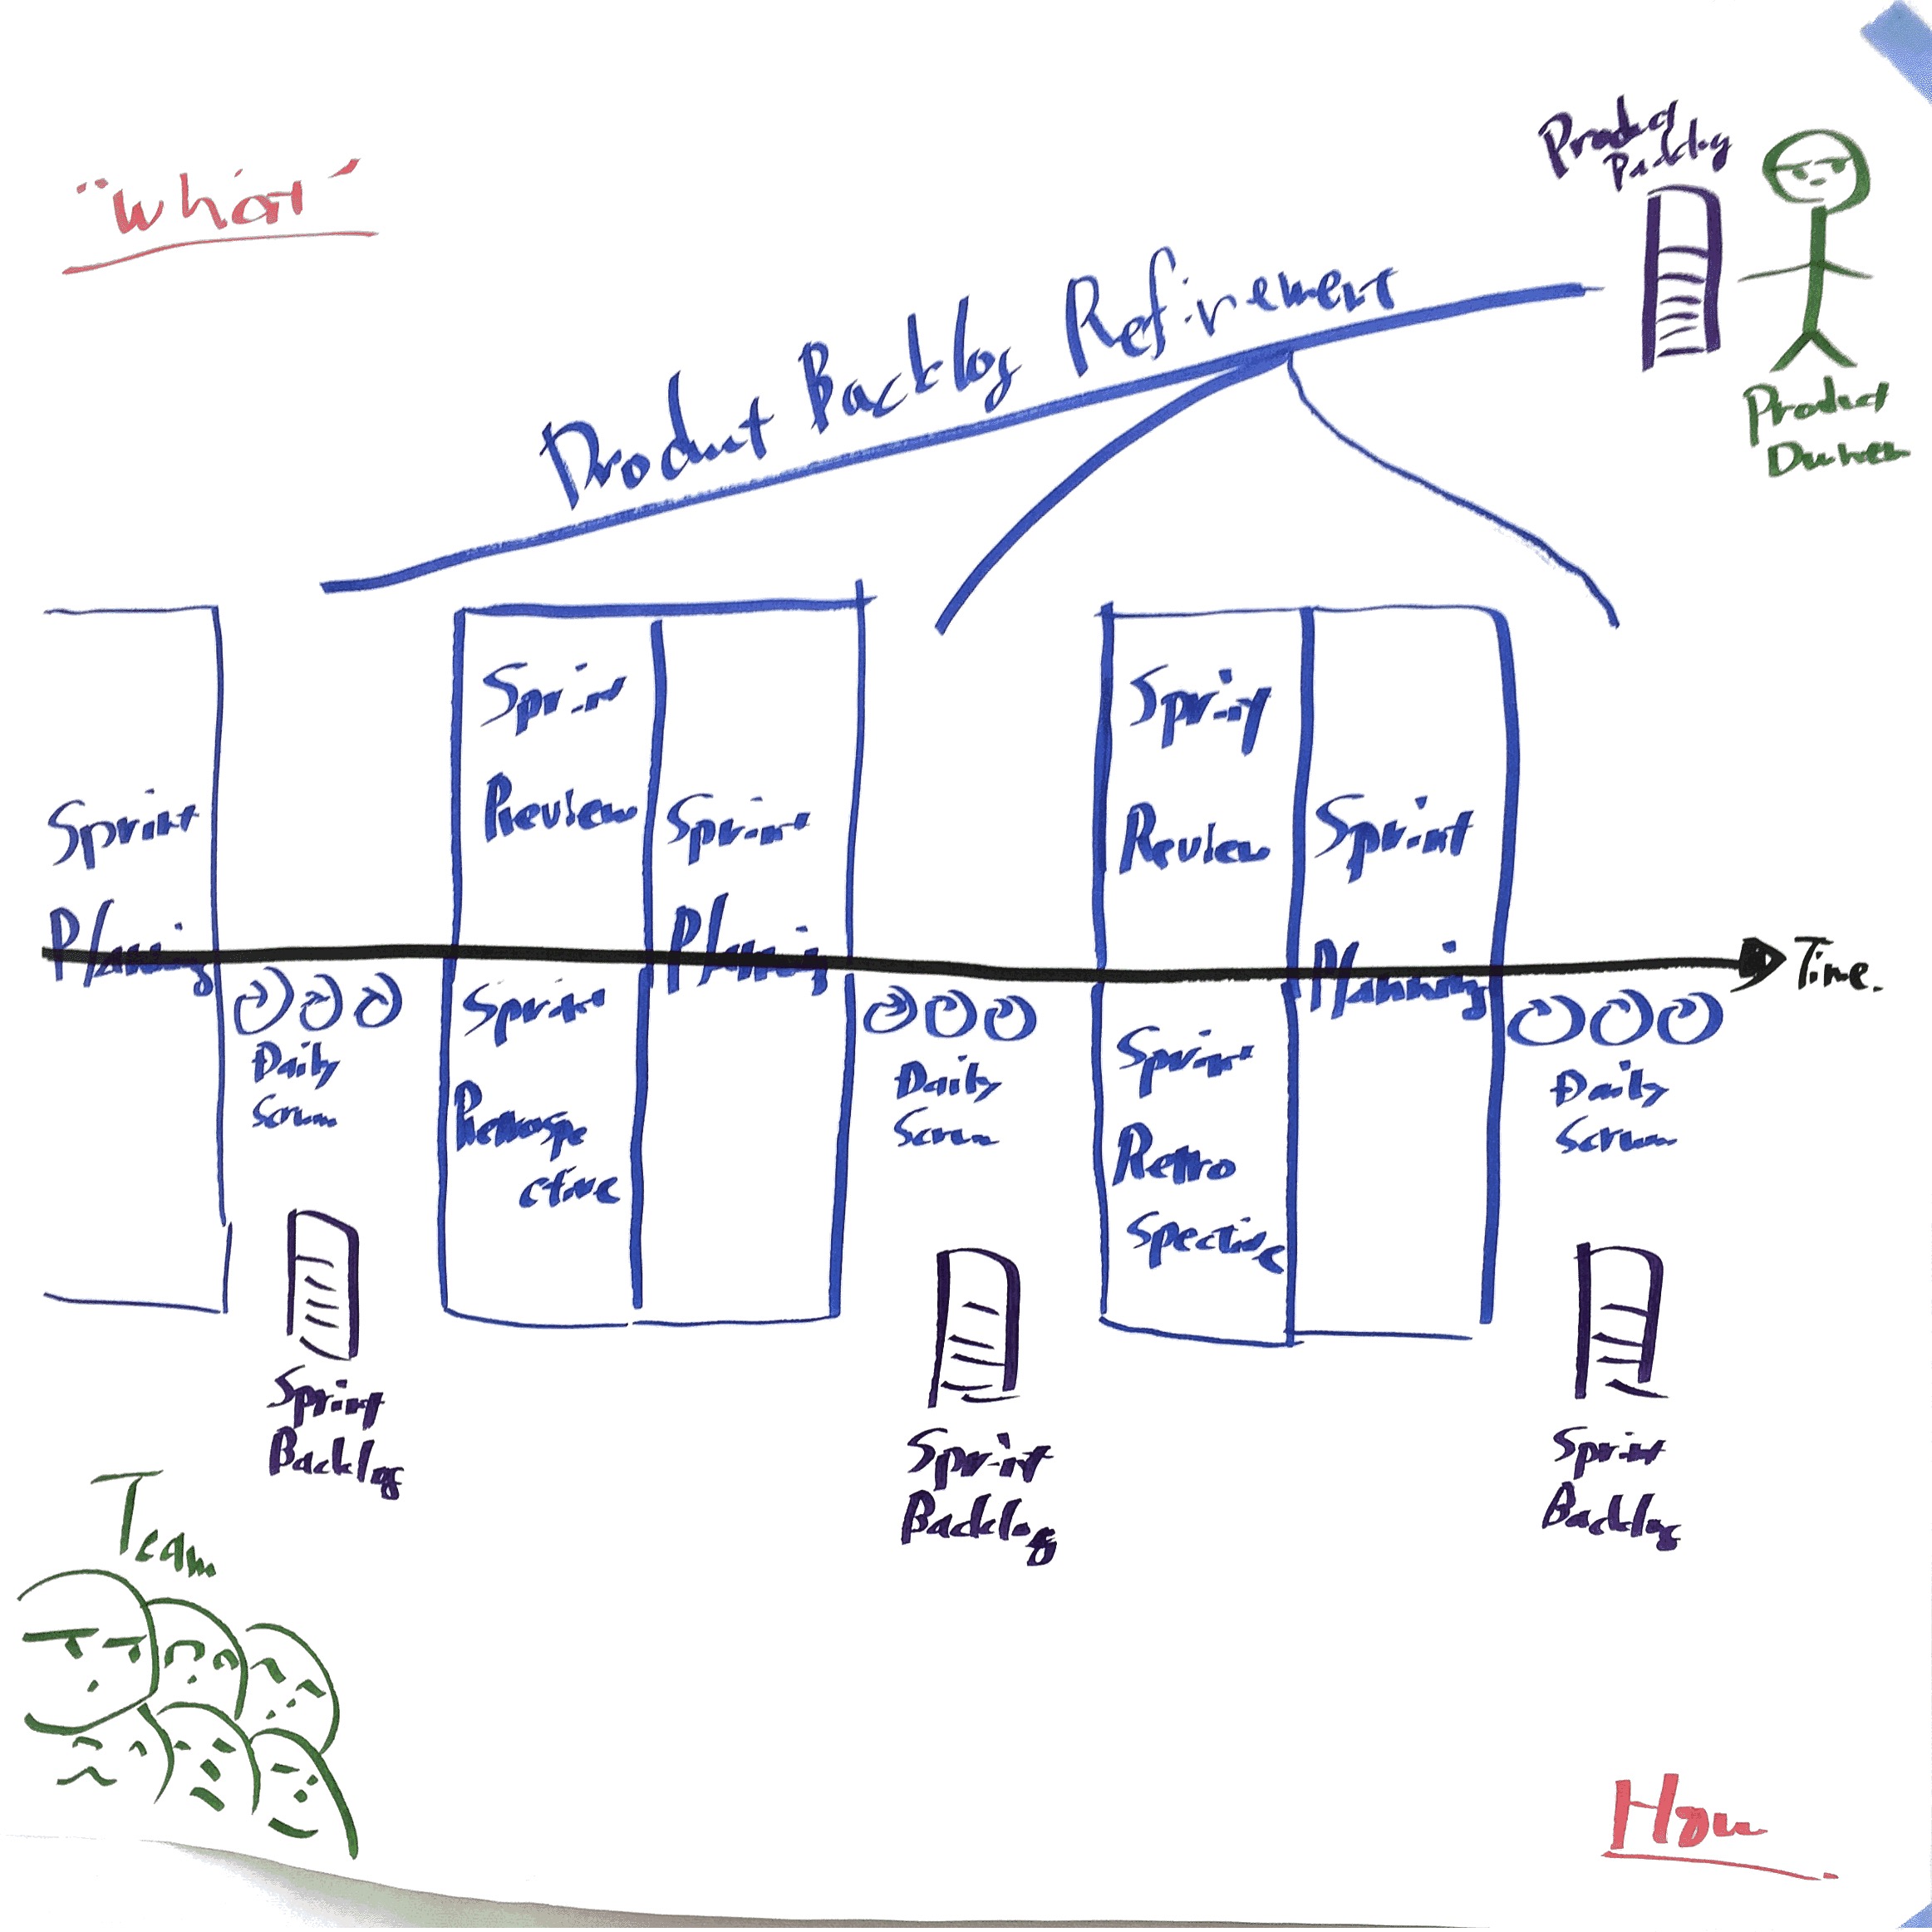 "What"
Product
Backlog
Product
Owner
Product Backlog Refinement
Sprint
Planning
Daily
Scrum
Sprint
Backlog
Sprint
Review
Sprint
Retrospe
ctive
Sprint
Planning
Daily
Scrum
Sprint
Backlog
Sprint
Review
Sprint
Retro
Spective
Sprint
Planning
Daily
Scrum
Sprint
Backlog
Time.
Team
How